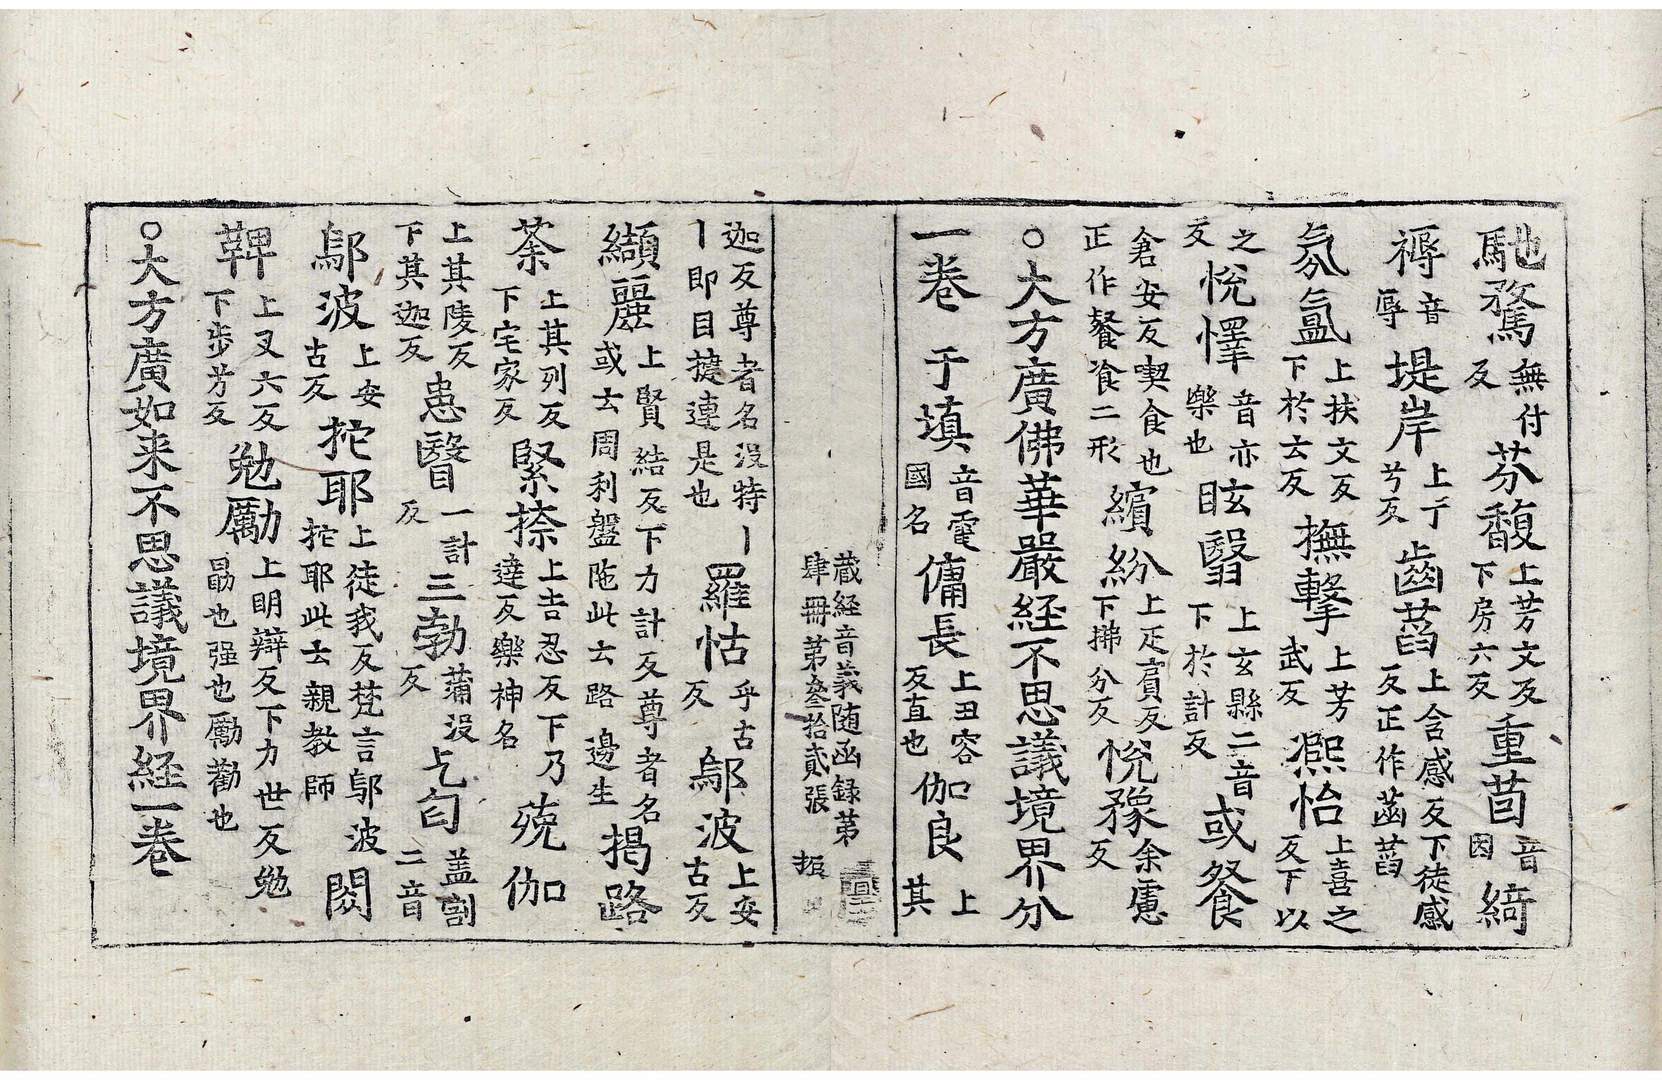 馳騖無付反芬馥上芳文反下房六反重茵音因綺
褥音辱堤岸上丁兮反齒萏上含感反下徒感反正作菡萏
氛氳上扶文反下於云反撫擊上芳武反凞怡上喜之反下以
之反悅懌音亦樂也眩翳上玄縣二音下於計反或餐
倉安反喫食也正作餐飡二形繽紛上疋賓反下拂分反悅豫余慮反
○大方廣佛華嚴経不思議境界分
一卷 于填音電國名傭長上丑容反直也伽良上其
藏経音義随函録第肆冊第叄拾貳張 振
迦反尊者名没特丨丨即目揵連是也羅怙乎古反鄔波上安古反
纈麗上賢結反下力計反尊者名或云周利盤陁此云路邊生揭路
荼上其列反下宅家反緊捺上吉忍反下乃達反樂神名殑伽
上其陵反下其迦反恚瞖一計反三勃蒲没反乞匄盖割二音
鄔波上安古反拕耶上徒我反梵言鄔波拕耶此云親教師閦
鞞上叉六反下步芳反勉勵上明辯反下力世反勉勗也强也勵勸也
○大方廣如来不思議境界経一卷